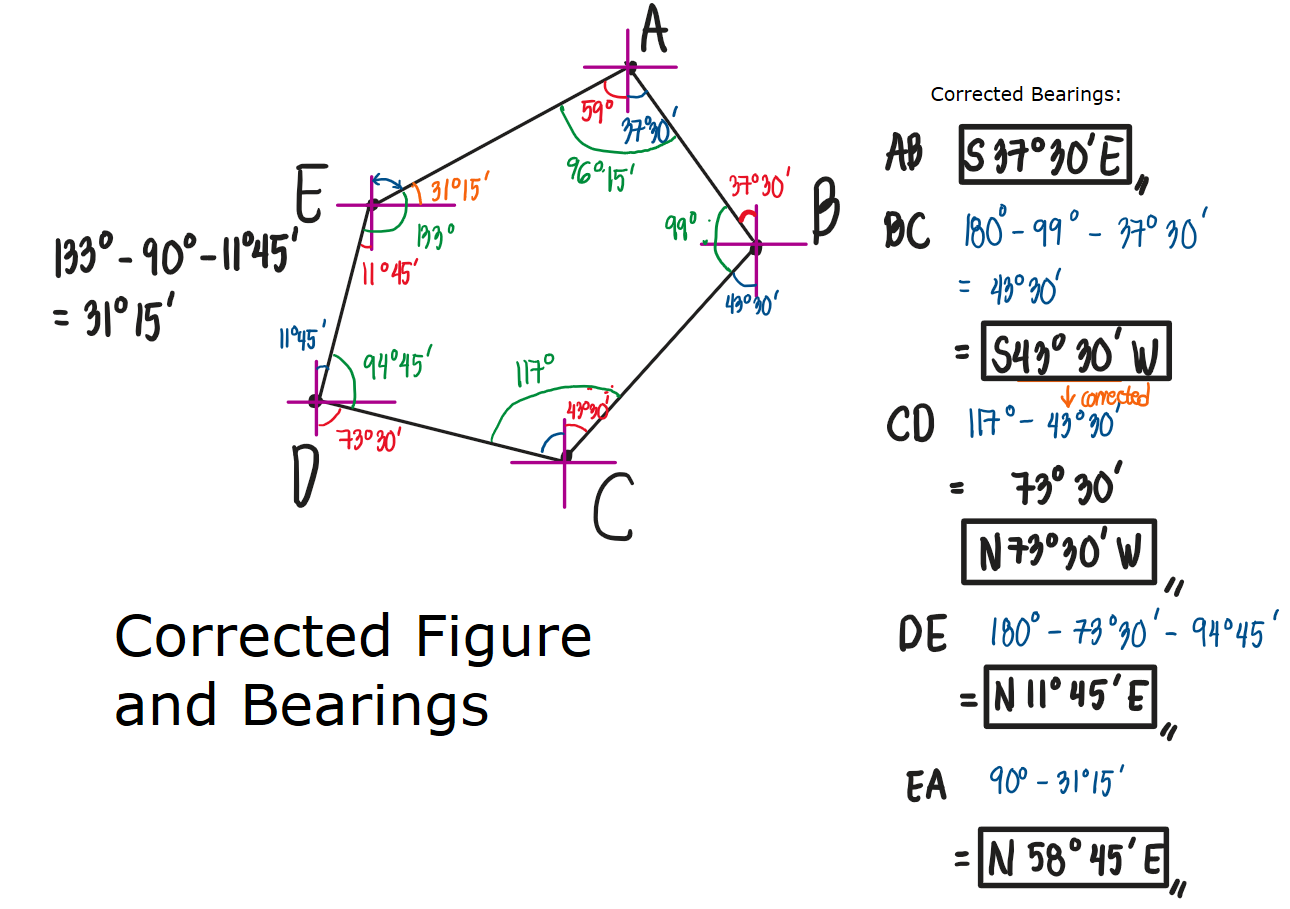 A
59°
37°30'
96°15'
E
31°15'
133°
11°45'
133° - 90° - 11°45'
= 31°15'
B
37°30'
99°
43°30'
11°45'
94°45'
73°30'
D
117°
43°30'
C
Corrected Figure
and Bearings
Corrected Bearings:
AB S 37°30' E
BC 180° - 99° - 37°30'
= 43°30'
= S43°30' W
↓ corrected
CD 117° - 43°30'
= 73°30'
N 73°30' W
DE 180° - 73°30' - 94°45'
= N 11°45' E
EA 90° - 31°15'
= N 58°45' E